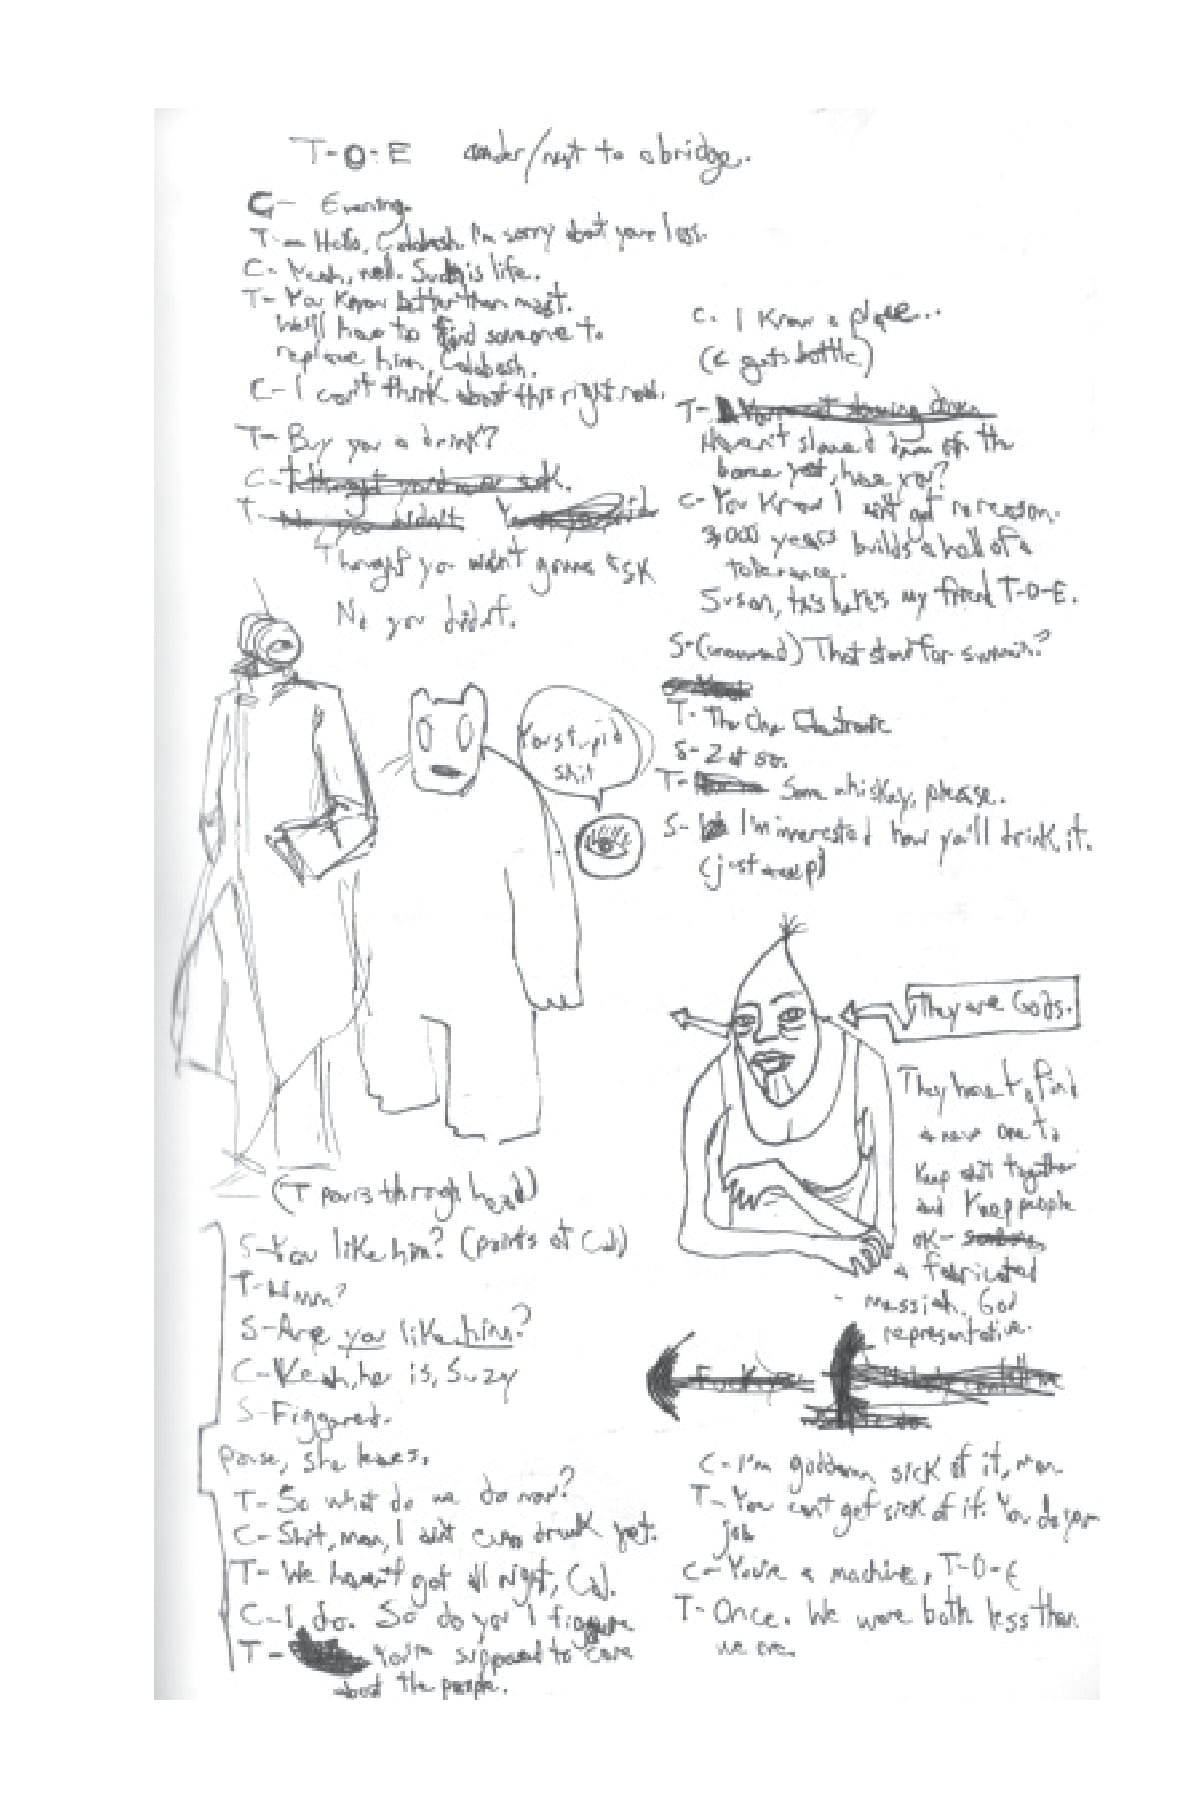 T-O-E under/next to a bridge.
C- Evening.
T- Hello, Calabash. I'm sorry about your loss.
C- Yeah, well. Such is life.
T- You know better than most.
We'll have to find someone to
replace him, Calabash.
C- I can't think about this right now.
T- Buy you a drink?
C- I thought you'd never ask.
T- No you didn't
Thought you weren't gonna ask
No you didn't.
You stupid
shit
(T pours through head)
S- You like him? (points at Cal)
T- Hmm?
S- Are you like him?
C- Yeah, he is, Suzy
S- Figgered.
pause, she leaves.
T- So what do we do now?
C- Shit, man, I ain't even drunk yet.
T- We haven't got all night, Cal.
C- I do. So do you I figgure
T- You're supposed to care
about the people.
C- I know a place...
(C gets bottle)
T- slowing down
Haven't slowed down on the
booze yet, have you?
C- You know I ain't got no reason.
3,000 years builds a hell of a
tolerance.
Susan, this here's my friend T-O-E.
S- (unamused) That stand for somethin?
T- The One Electronic
S- 2 at 50.
T- Some whiskey, please.
S- I'm interested how you'll drink it.
(just a )
They are Gods.
They have to find
a new one to
keep shit together
and keep people
OK-
a fabricated
messiah. God
representative.
Fuck you
C- I'm goddamn sick of it, man.
T- You can't get sick of it. You do your
job
C- You're a machine, T-O-E
T- Once. We were both less than
we are.